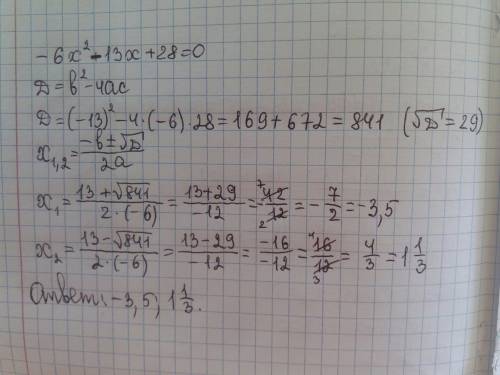 -6x² - 13x + 28 = 0
Д = в² - 4ас
Д = (-13)² - 4·(-6)·28 = 169 + 672 = 841 (√Д = 29)
x₁,₂ = (-в ± √Д) / 2а
x₁ = (13 + √841) / (2·(-6)) = (13 + 29) / (-12) = - 42⁷ / 12₂ = - 7/2 = -3,5
x₂ = (13 - √841) / (2·(-6)) = (13 - 29) / (-12) = (-16) / (-12) = 16⁴ / 12₃ = 4/3 = 1 1/3
Ответ: -3,5; 1 1/3.